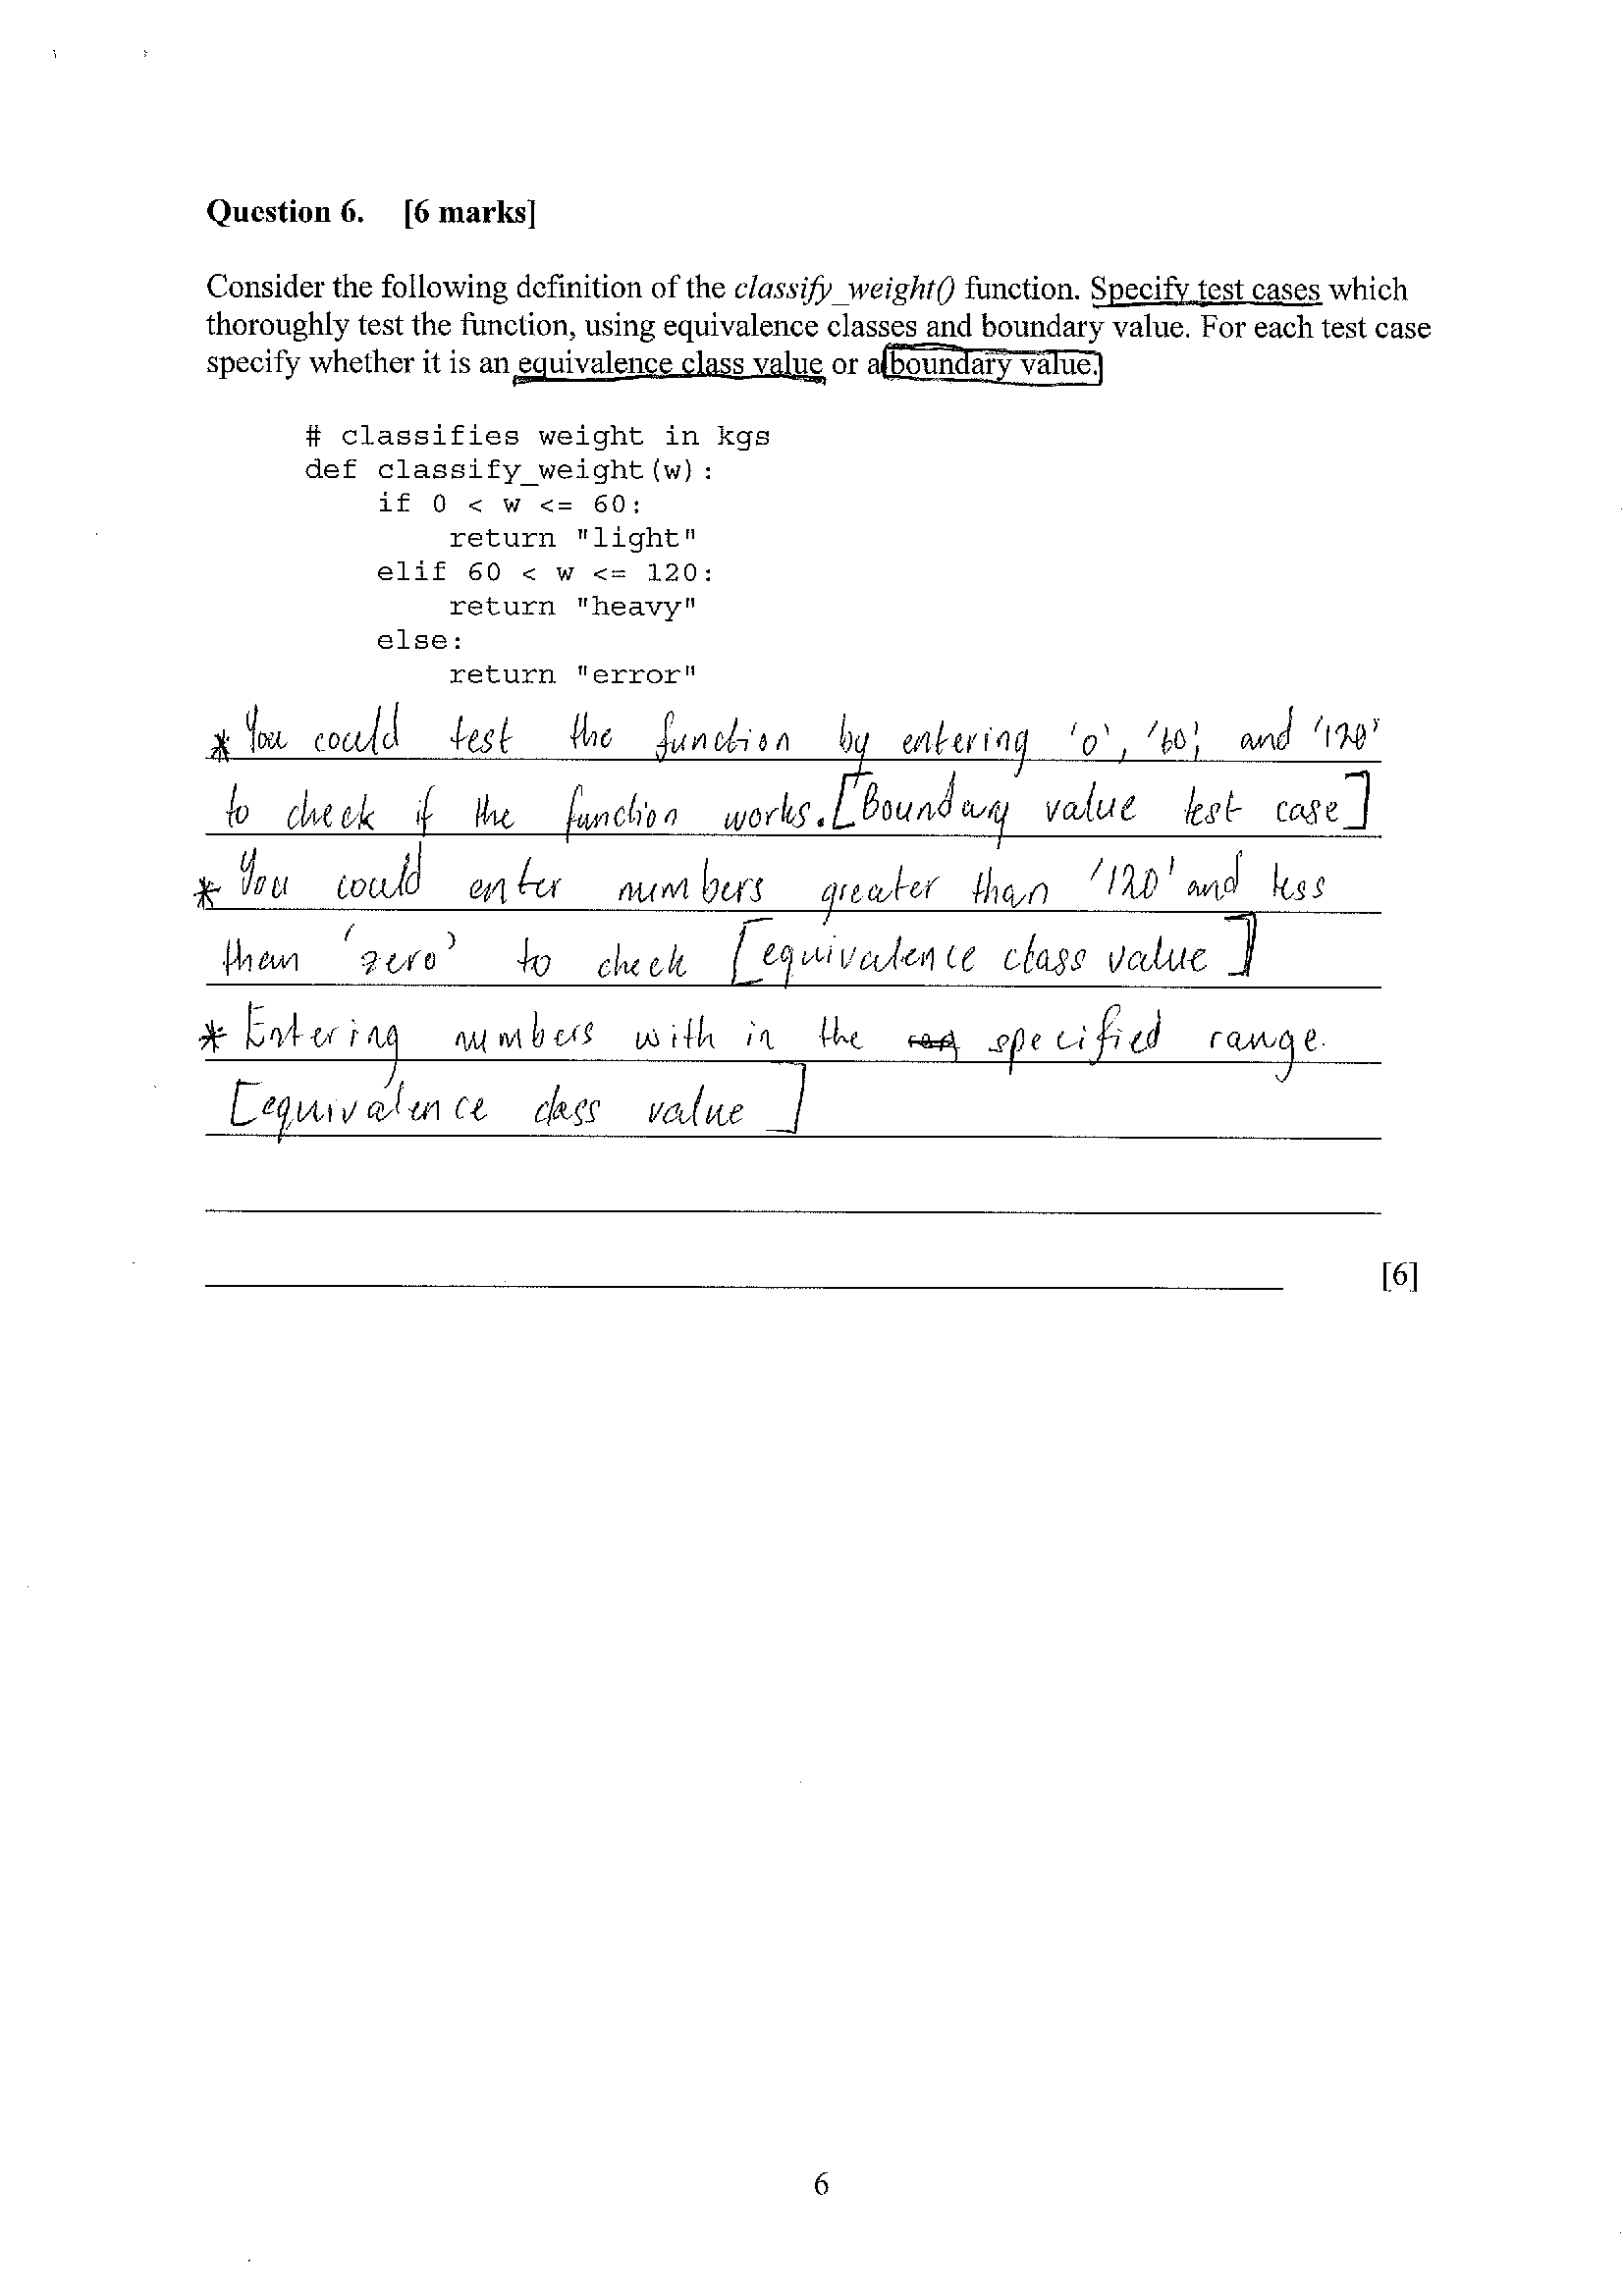 Question 6. [6 marks]
Consider the following definition of the classify_weight() function. Specify test cases which
thoroughly test the function, using equivalence classes and boundary value. For each test case
specify whether it is an equivalence class value or a boundary value.
# classifies weight in kgs
def classify_weight(w):
    if 0 < w <= 60:
        return "light"
    elif 60 < w <= 120:
        return "heavy"
    else:
        return "error"
* You could test the function by entering '0', '60', and '120'
to check if the function works. [Boundary value test case]
* You could enter numbers greater than '120' and less
than 'zero' to check [equivalence class value]
* Entering numbers with in the specified range.
[equivalence class value]
[6]
6